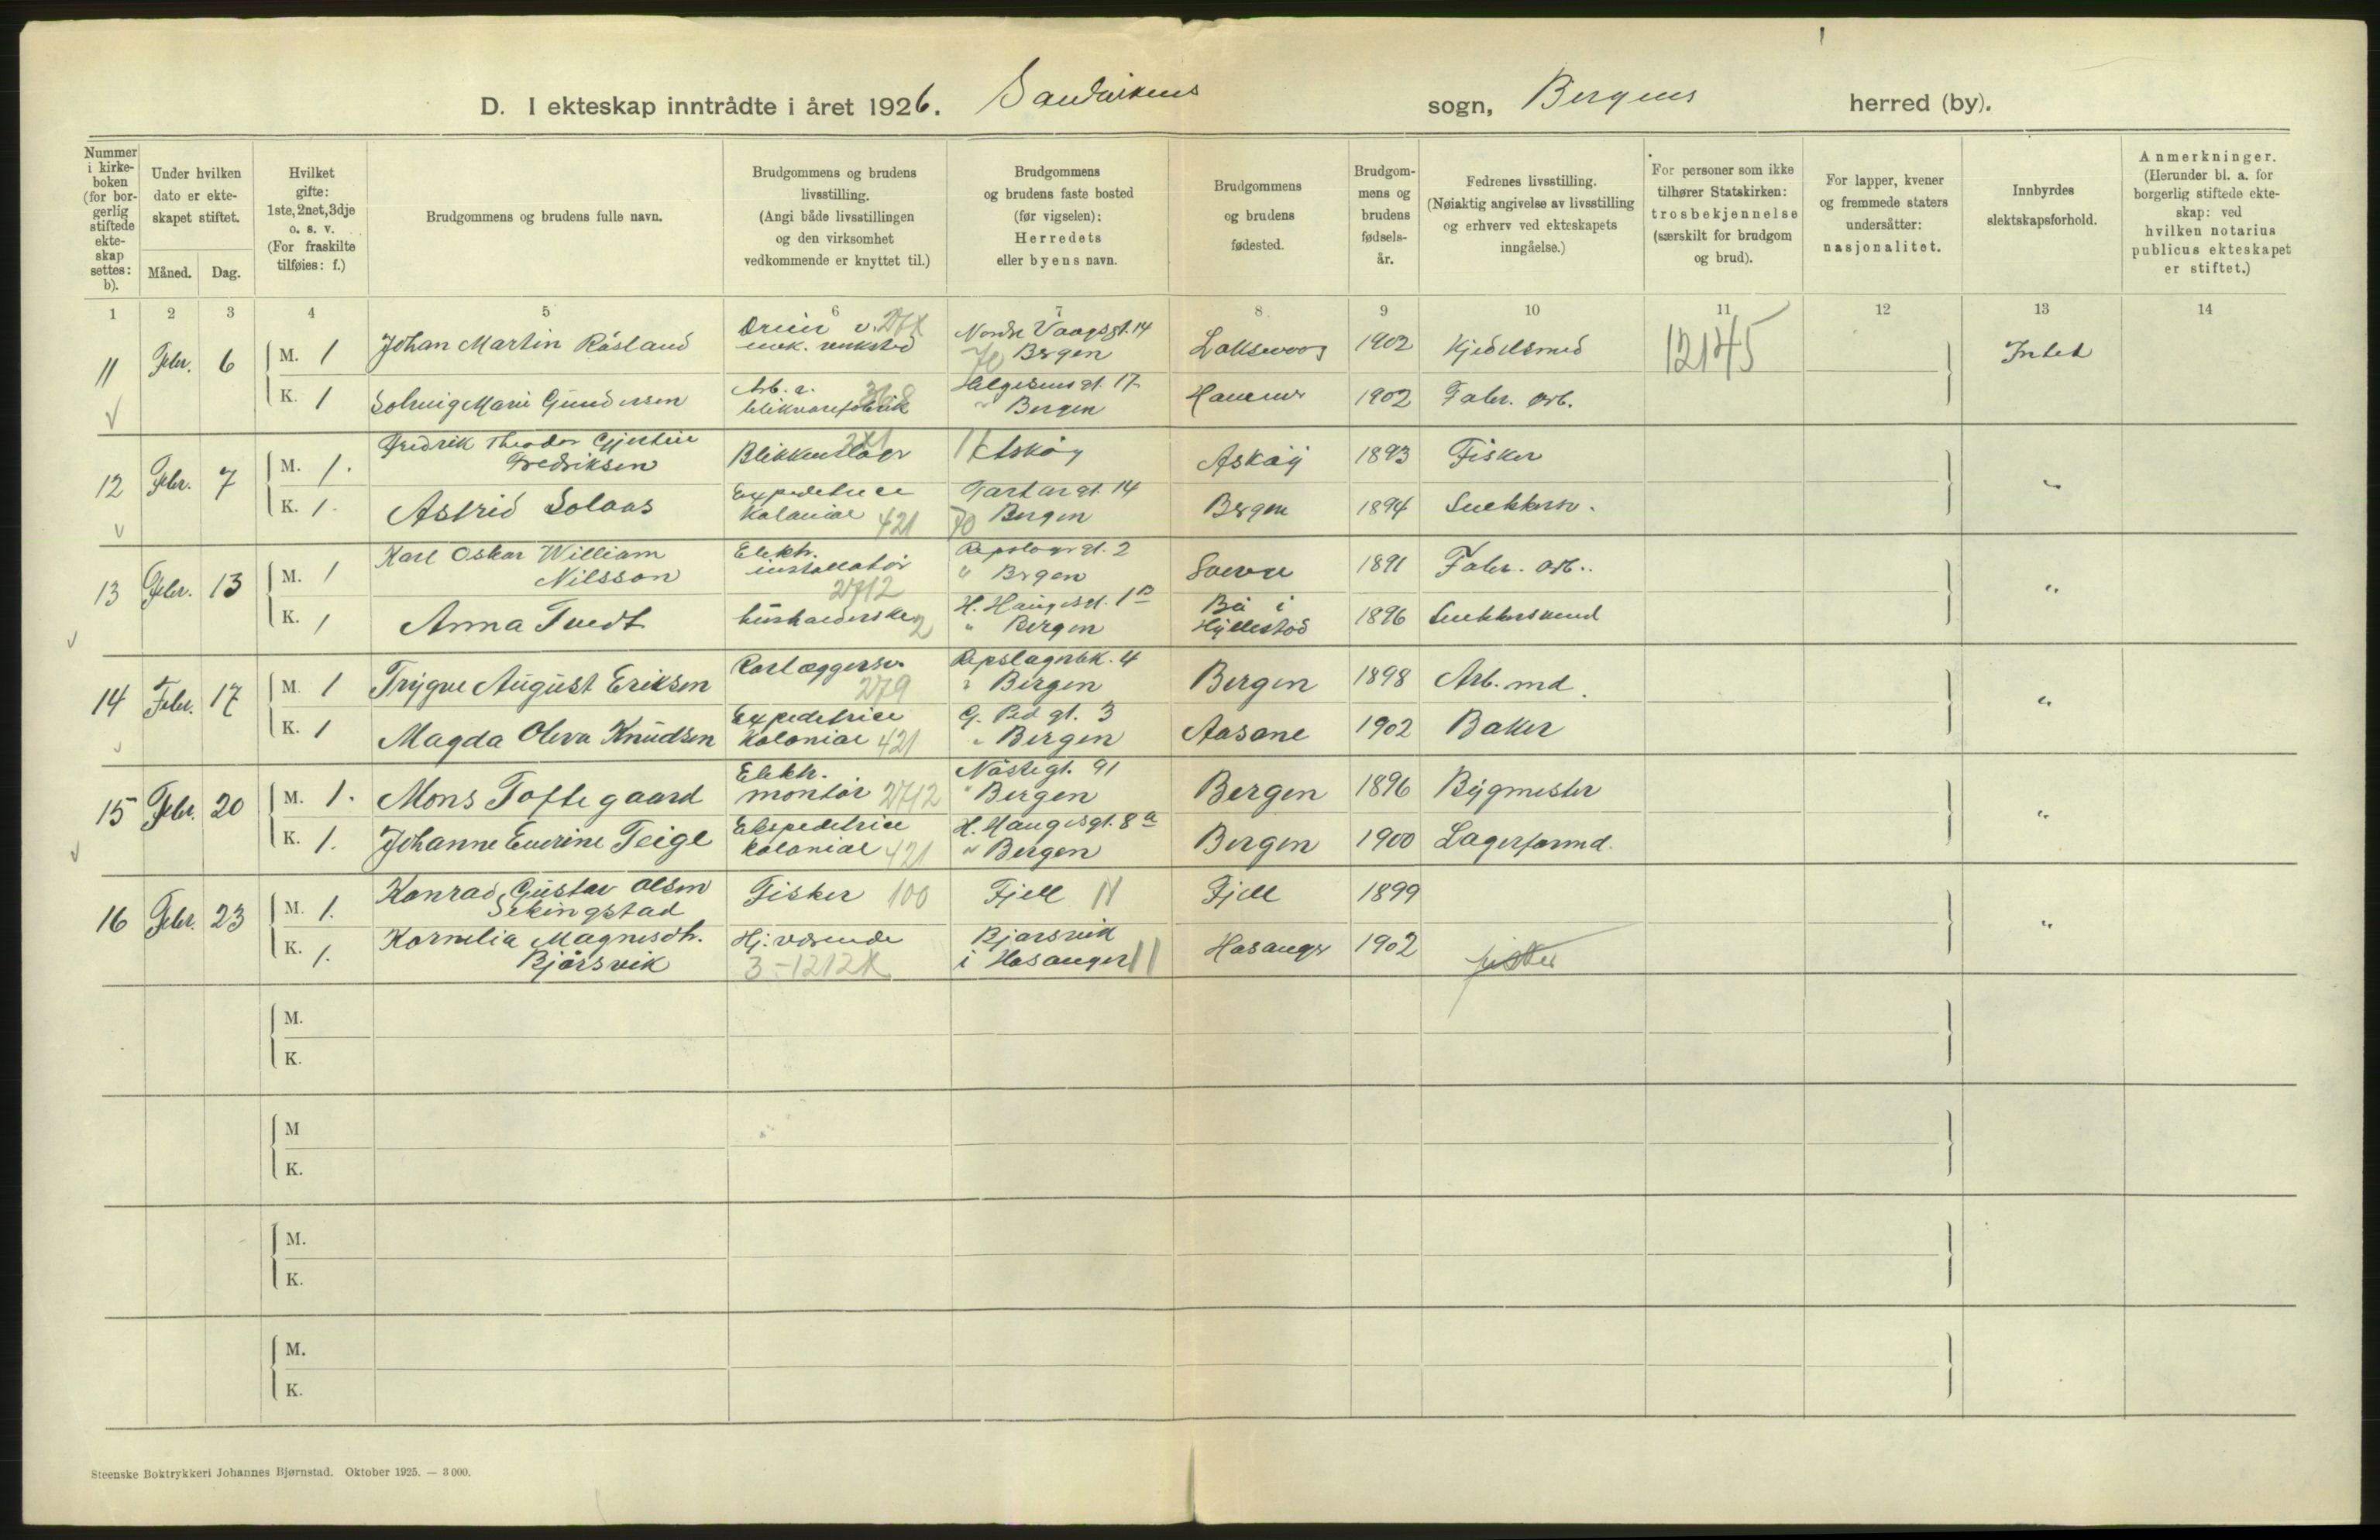 D. I ekteskap inntrådte i året 1926. Sandvikens sogn, Bergens herred (by).
Nummer i kirke-boken (for bor-gerlig stiftede ekte-skap settes: b).
Under hvilken dato er ekte-skapet stiftet.
Måned. Dag.
Hvilket gifte: 1ste, 2net, 3dje o. s. v. (For fraskilte tilføies: f.)
Brudgommens og brudens fulle navn.
Brudgommens og brudens livsstilling. (Angi både livsstillingen og den virksomhet vedkommende er knyttet til.)
Brudgommens og brudens faste bosted (før vigselen): Herredets eller byens navn.
Brudgommens og brudens fødested.
Brudgom-mens og brudens fødsels-år.
Fedrenes livsstilling. (Nøiaktig angivelse av livsstilling og erhverv ved ekteskapets inngåelse.)
For personer som ikke tilhører Statskirken: trosbekjennelse (særskilt for brudgom og brud).
For lapper, kvener og fremmede staters undersåtter: nasjonalitet.
Innbyrdes slektskapsforhold.
Anmerkninger. (Herunder bl. a. for borgerlig stiftede ekte-skap: ved hvilken notarius publicus ekteskapet er stiftet.)
1 2 3 4 5 6 7 8 9 10 11 12 13 14
11 Febr. 6 M. 1 Johan Martin Råsland Dreier v. mek. verksted Nordre Vaagsgt. 14 70 Bergen Laksevaag 1902 Kjedelsmed 12145 Intet
K. 1 Solveig Marie Gundersen Arb. blikvarefabrik 368 Helgesensgt. 17 " Bergen Hammer 1902 Fabr. arb.
12 Febr. 7 M. 1. Fredrik Theodor Fredriksen Blikkenslager 271 11 Askøy Askøy 1893 Fisker "
K. 1. Astrid Solaas Expeditrice Kolonial 421 Tartargt. 14 70 Bergen Bergen 1894 Snekkerm.
13 Febr. 13 M. 1 Karl Oskar William Nilsson Elektr. installatør 2712 Repslagergt. 2 " Bergen 1891 Fabr. arb. "
K. 1 Anna Tvedt husholderske 2 H. Haugesgt. 1 B " Bergen Bø i Hyllestad 1896 Snekkersvend
14 Febr. 17 M. 1 Trygve August Eriksen Rørlæggersv. 279 Repslagerbk. 4 " Bergen Bergen 1898 Arb. md. "
K. 1 Magda Oleva Knudsen Expeditrice Kolonial 421 G. Ped gt. 3 " Bergen Aasane 1902 Baker
15 Febr. 20 M. 1. Mons Toftegaard Elektr. montør 2712 Nøstegt. 91 " Bergen Bergen 1896 Bygmester "
K. 1. Johanne Everine Teige Ekspeditrice kolonial 421 H. Haugesgt. 8 a " Bergen Bergen 1900 Lagerformd.
16 Febr. 23 M. 1. Konrad Gustav Olsen Sekingstad Fisker 100 Fjell 11 Fjell 1899 "
K. 1. Kornelia Magnesdtr. Bjørsvik Hj. værende 3-1212 Bjørsvik i Hosanger 11 Hosanger 1902
M.
K.
M
K.
M.
K.
M.
K.
Steenske Boktrykkeri Johannes Bjørnstad. Oktober 1925. — 3 000.